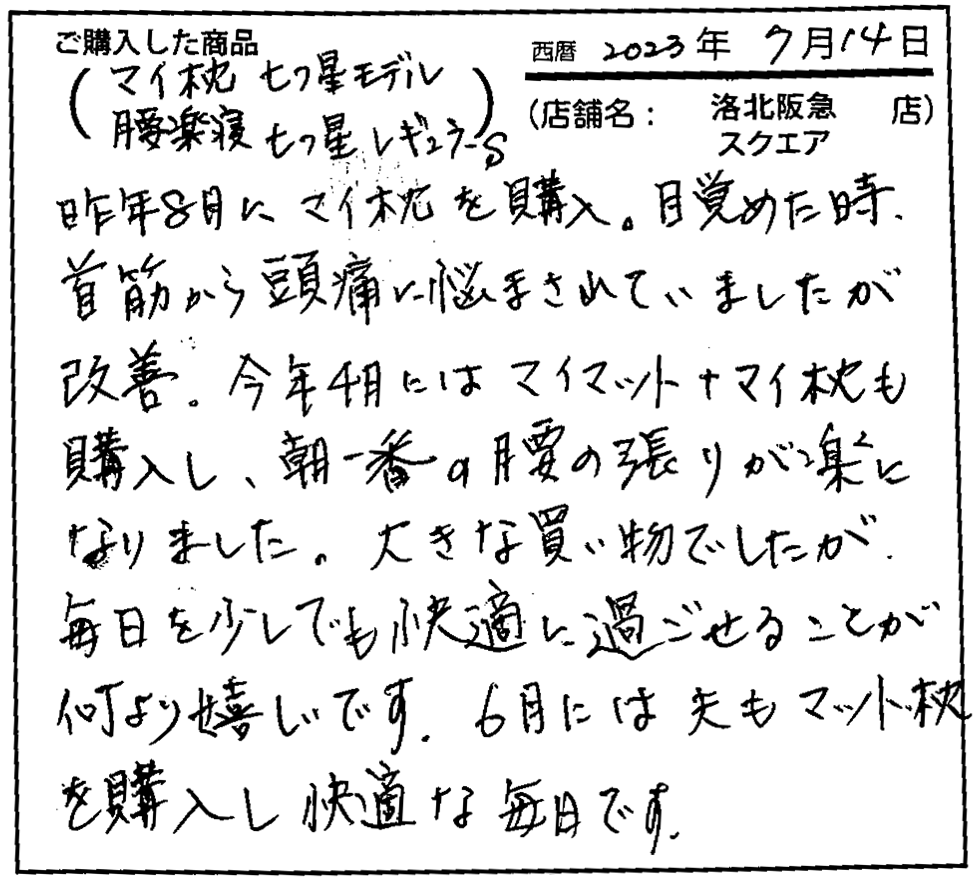 ご購入した商品
西暦 2023年 7月14日
(マイ枕 七つ星モデル
腰楽寝 七つ星 レギュラーS)
(店舗名： 洛北阪急 店)
スクエア
昨年8月に マイ枕を購入。目覚めた時、
首筋から頭痛に悩まされていましたが
改善。今年4月には マイマット+マイ枕も
購入し、朝一番の腰の張りが楽に
なりました。大きな買い物でしたが、
毎日を少しでも快適に過ごせることが
何より嬉しいです。6月には 夫もマット・枕
を購入し快適な毎日です。